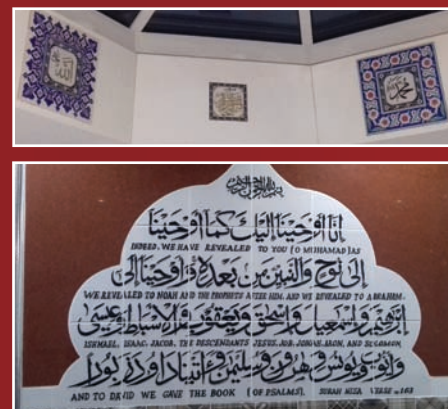 الله
محمد
بسم الله الرحمن الرحيم
إنا أوحينا إليك كما أوحينا
INDEED, WE HAVE REVEALED TO YOU [O MUHAMMAD] AS
إلى نوح والنبيين من بعده وأوحينا إلى
WE REVEALED TO NOAH AND THE PROPHETS AFTER HIM. AND WE REVEALED TO ABRAHAM,
إبرهيم وإسمعيل وإسحق ويعقوب والأسباط وعيسى
ISHMAEL, ISAAC, JACOB, THE DESCENDANTS JESUS, JOB, JONAH, ARON, AND SOLOMON
وأيوب ويونس وهرون وسليمن وآتينا داوود زبورا
AND TO DAVID WE GAVE THE BOOK [OF PSALMS]. SURAH NISA VERSE :163